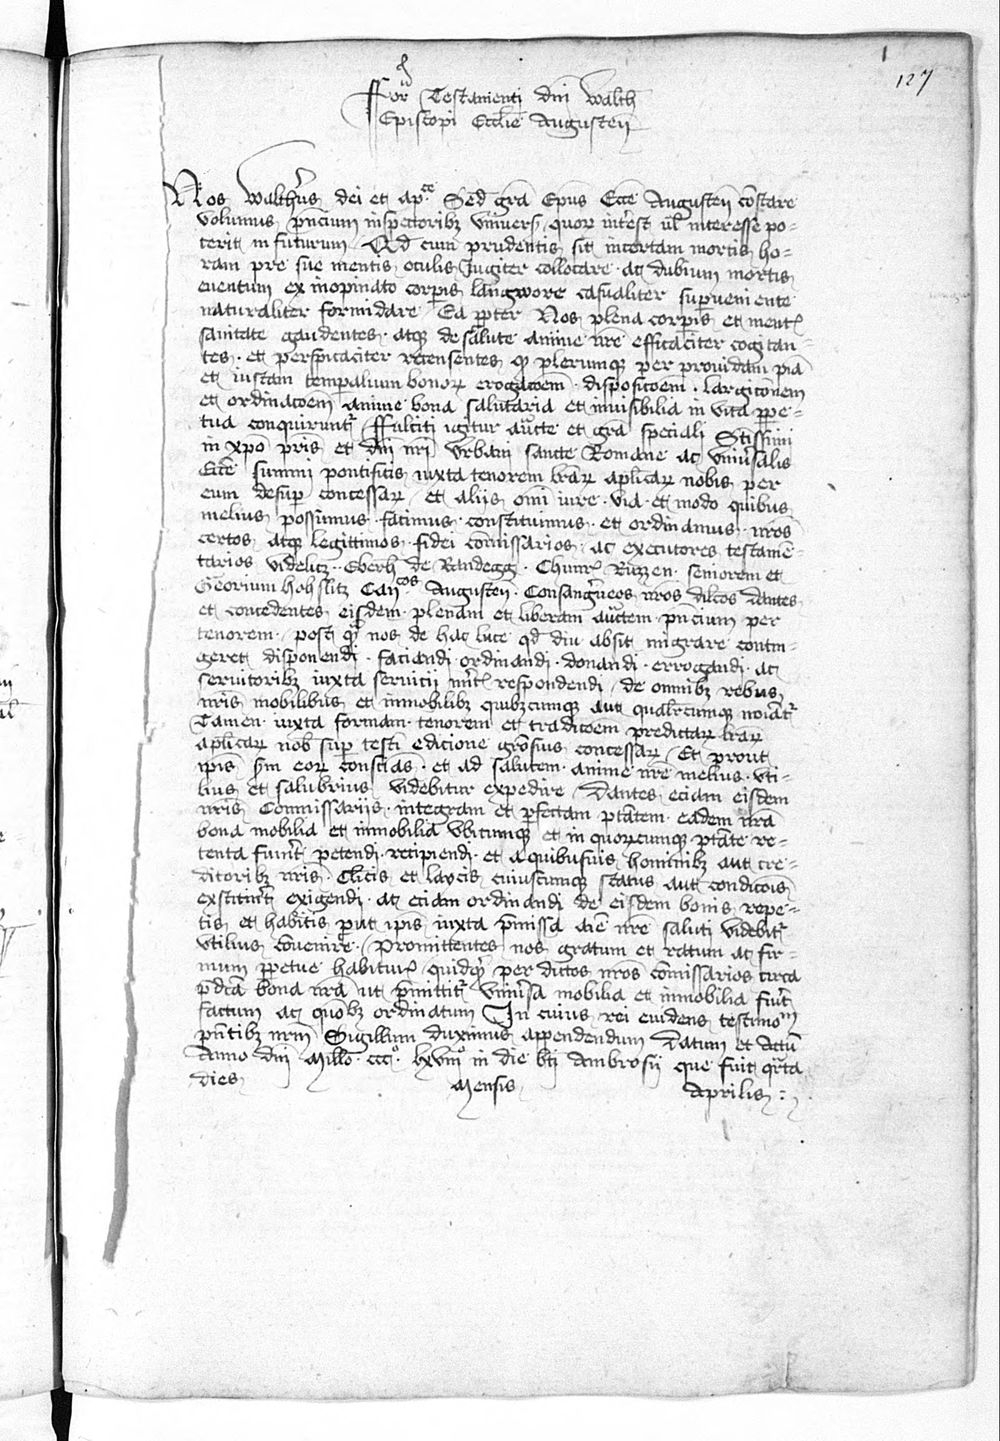 127
Forma Testamenti dni Walth
Episcopi Ecclie Augusten
Nos Waltherus dei et aplice Sed gra Epus Ecce Augusten constare
volumus pncium inspectoribz univers quor interest vel interesse po-
terit in futurum Qd cum prudentis sit incertam mortis ho-
ram pre sue mentis oculis Jugiter collocare ac dubium mortis
eventum ex inopinato corpis langwore casualiter supveniente
naturaliter formidare Ea ppter Nos plena corpis et ment
sanitate gaudentes atqz de salute anime nre efficaciter cogitan-
tes et perspicaciter recensentes qd plerumqz per providam piam
et iustam temporalium bonor erogacoem dispositoem largiconem
et ordinacoem anime bona salutaria et invisibilia in vita ppe-
tua conquirunt ffulciti igitur aucte et gra speciali Stissimi
in xpo pris et dni nri Urbani sancte Romane ac univsalis
Ecce summi pontificis iuxta tenorem lrar aplicar nobis per
eum desup concessar et alijs omi iure via et modo quibus
melius possumus facimus constituimus et ordinamus nros
certos atqz legittimos fidei comissarios ac executores testamen-
tarios videlicz Eberh de Randegg Chunr Ruzzen seniorem et
Georium Hohslitz Canicos Augusten Consangweos nros dilcos dantes
et concedentes eisdem plenam et liberam auctem pncium per
tenorem postqm nos de hac luce qd diu absit migrare contin-
geret disponendi faciendi ordinandi donandi errogandi ac
servitoribz iuxta servicii merit respondendi de omnibz rebus
nris mobilibus et inmobilibz quibzcumqz aut qualitercumqz noiatr
Tamen iuxta formam tenorem et tradicoem predictar lrar
aplicar nob sup testi edicione grosius concessar Et prout
ipis scdm eor conscias et ad salutem anime nre melius uti-
lius et salubrius videbitur expedire Dantes eciam eisdem
nris Commissariis integram et pfectam ptatem eadem nra
bona mobilia et inmobilia Ubicumqz et in quorcumqz ptate re-
tenta fuint petendi recipiendi et a quibusvis hominibz aut cre-
ditoribz nris Clicis et laycis cuiuscumqz status aut condicois
exstitint exigendi ac eciam ordinandi de eisdem bonis repe-
tis et habitis put ipis iuxta pmissa aie nre saluti videbit
utilius convenire Promittentes nos gratum et ratum ac fir-
mum ppetue habitur quidqd per dictos nros comissarios circa
pdca bona nra ut pmittit univsa mobilia et inmobilia fiut
factum ac quobz ordinatum In cuius rei evidens testimom
pntibz nrm Sigillum duximus appendendum Datum et Actu
Anno dni Millo ccco lxviiio in die bti Ambrosii que fuit qrta
dies mensis Aprilis